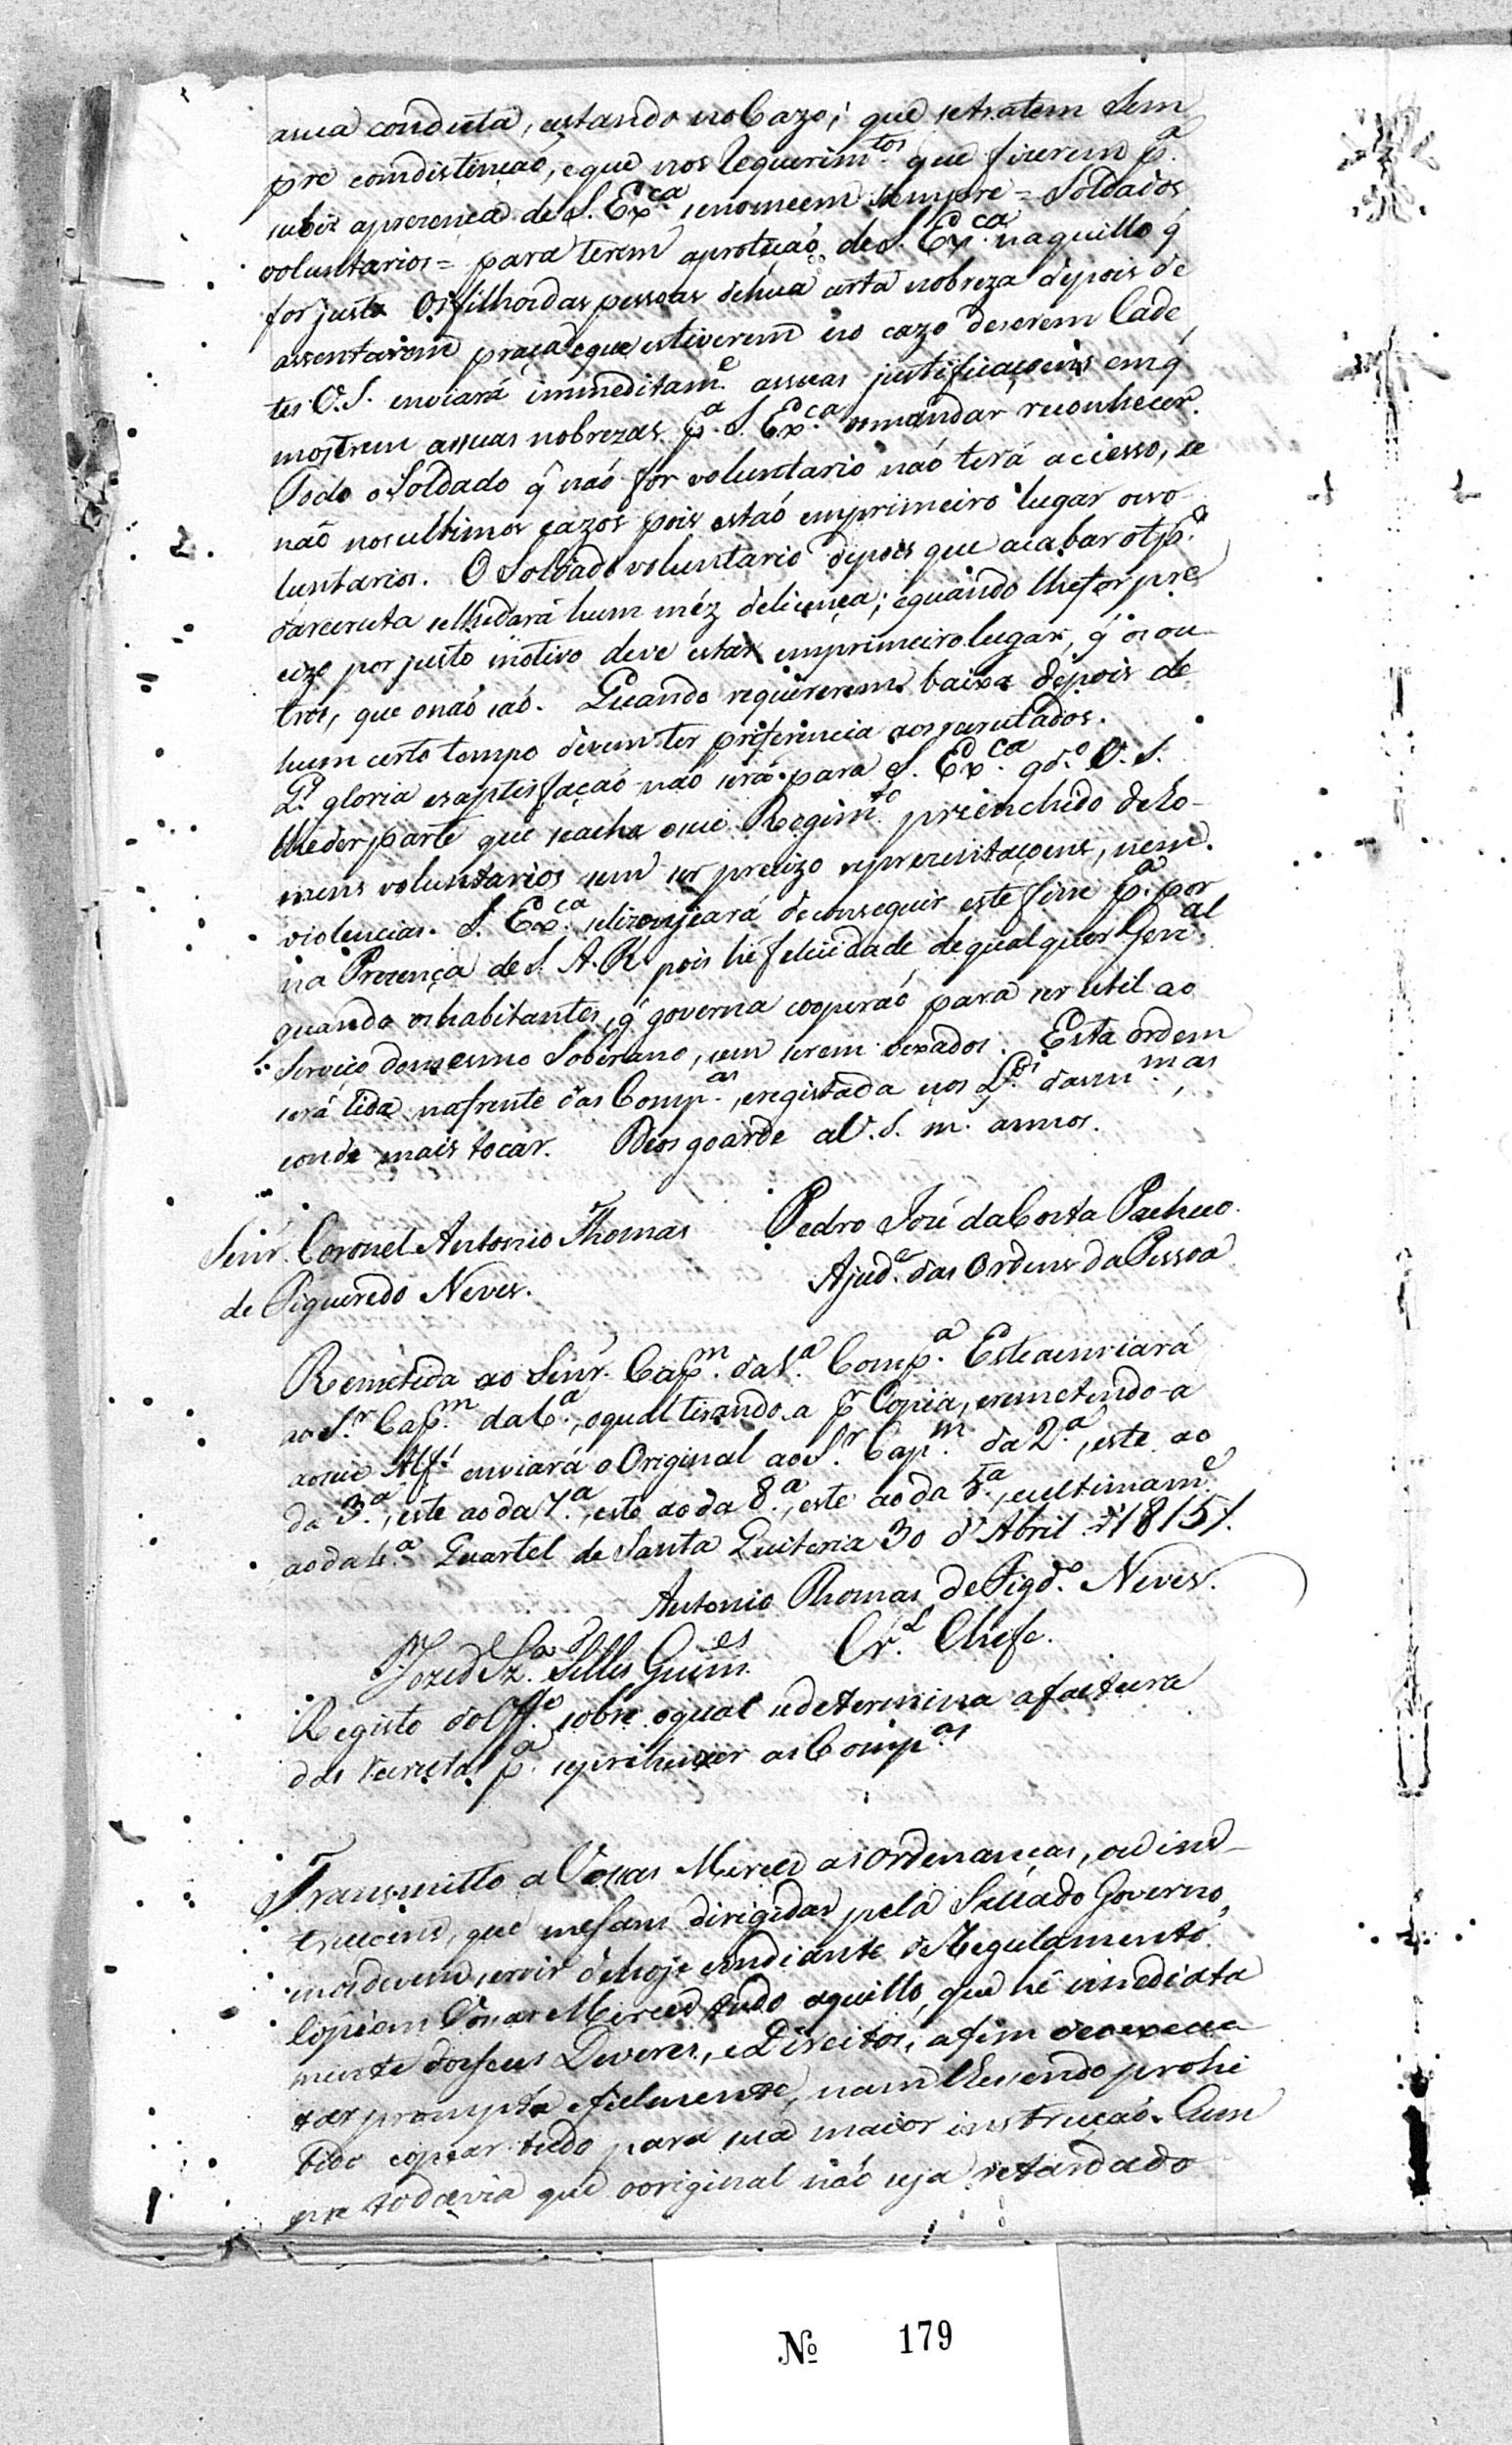 asua conducta, estando no Cazo; que setratem Sem
pre comdistençaõ, eque nos Requerim.tos que fizerem p.a
subir aprezença de S. Ex.ca senomeem sempre = Soldados
voluntarios = para terem aproteçaõ de S. Ex.ca naquillo q̃
for justo Os filhos das pessoas dehua certa nobreza depois de
assentarem praça eque estiverem no cazo deserem Cade
tes V.S. enviará immeditam.e assuas justificaçoens emq̃
mostrem assuas nobrezas p.a S. Ex.ca os mandar reconhecer.
Todo o Soldado q̃ naõ for voluntario naõ terá aciesso, se
naõ nos ultimos cazos pois estaõ emprimeiro lugar os vo
luntarios. O Soldado voluntario depois que acabar otp.o
darecruta selhedará hum méz delicença; equando lhefor pre
cizo por justo motivo deve estar emprimeiro lugar, q̃ os ou
tros, que onaõ saõ. Quando requererem baixa depois de
hum certo tempo devem ter preferencia aos recrutados.
Q.l gloria esaptisfaçaõ naõ será para S. Ex.ca qd.o V. S.
lheder parte que seacha oseu Regim.to prienchido deho-
mens voluntarios sem ser precizo reprezentaçoens, nem
violencias. S. Ex.ca selizongeará deconseguir este fim p.a por
na Prezença de S. A. R. pois he felicidade dequalquer Gen.al
quando os habitantes, q̃ governa cooperaõ para ser util ao
Serviço domesmo Soberano, sem serem vexados. Esta ordem
será lida nafrente das Comp.as, eregistada nos L.os dasm.mas,
eonde mais tocar. Deos goarde aV. S. m. annos.
Pedro José daCosta Pacheco
Senr. Coronel Antonio Thomas
Ajud.e das Ordens da Pessoa
de Figueredo Neves.
Remetida ao Senr. Cap.m da 1.a Comp.a Este aenviará
ao S.r Cap.m da 6.a, oqual tirando-a p.r Copia, eremetendo-a
aoseu Alf.s enviará o Original aoS.r Cap.m da 2.a, este ao
da 3.a, este aoda 7.a, este aoda 8.a, este ao da 5.a, eultimam.e
aoda 4.a Quartel de Santa Quiteria 30 d'Abril d'1815/.
Antonio Thomas de Figd.o Neves.
Cr.l Chefe.
Joze d Sz.a Telles Guim.es
Registo doOff.o sobre oqual sedetermina afactura
das recrutas p.a seprihenxer as Comp.as
Transmitto a Vossas Merces as Ordenanças, ou ins-
truçoens, que mesam dirigidas pela Sallado Governo,
nos devem servir dehoje emdiante deRegulamento
Copiem Vossas Merces tudo aquillo, que hé imediata
mente dosseus Deveres, eDireitos, afim deexecu
tar prompta efielmente, nam lhessendo prohi
bido copear tudo para sua maior instruçaõ. Cum
pre todavia que ooriginal naõ seja retardado
Nº 179